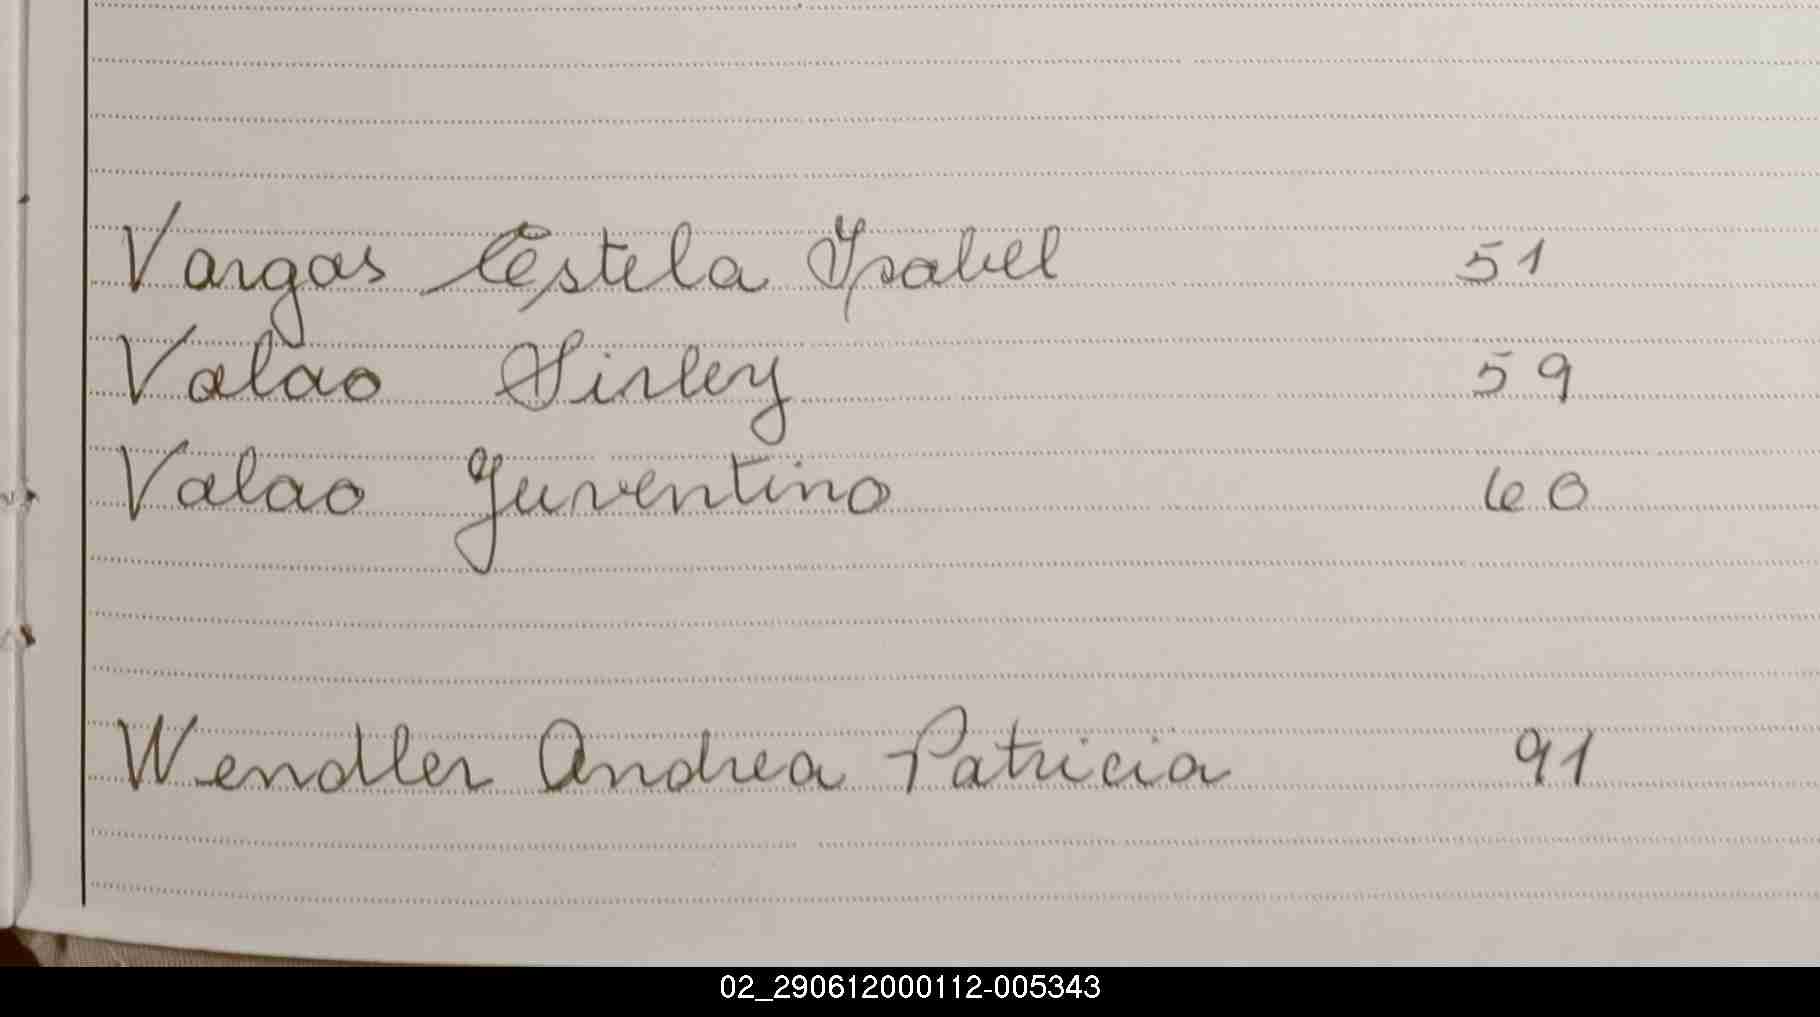 Vargas Estela Ysabel 51
Valao Sirley 59
Valao Juventino 60
Wendler Andrea Patricia 91
02_290612000112-005343